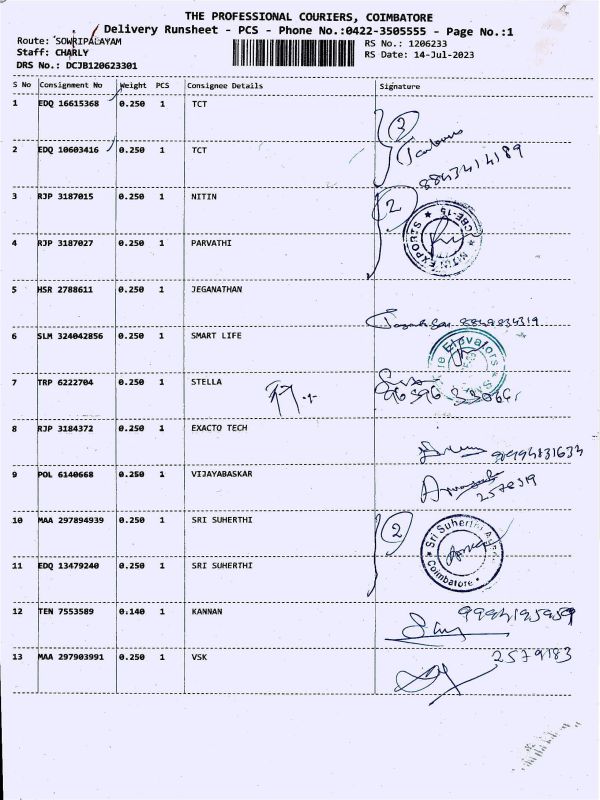 THE PROFESSIONAL COURIERS, COIMBATORE
Delivery Runsheet - PCS - Phone No.:0422-3505555 - Page No.:1
Route: SOWRIPALAYAM
RS No.: 1206233
Staff: CHARLY
RS Date: 14-Jul-2023
DRS No.: DCJB120623301
S No Consignment No Weight PCS Consignee Details Signature
1 EDQ 16615368 0.250 1 TCT
3
2 EDQ 10603416 0.250 1 TCT
8843414189
3 RJP 3187015 0.250 1 NITIN
2
NITIN EXPORTS CBE-15
4 RJP 3187027 0.250 1 PARVATHI
5 HSR 2788611 0.250 1 JEGANATHAN
6 SLM 324042856 0.250 1 SMART LIFE
Elevators
7 TRP 6222704 0.250 1 STELLA
8 RJP 3184372 0.250 1 EXACTO TECH
9994831633
9 POL 6140668 0.250 1 VIJAYABASKAR
10 MAA 297894939 0.250 1 SRI SUHERTHI
2
Sri Suherthi
Coimbatore
11 EDQ 13479240 0.250 1 SRI SUHERTHI
12 TEN 7553589 0.140 1 KANNAN
9994195959
13 MAA 297903991 0.250 1 VSK
2579183